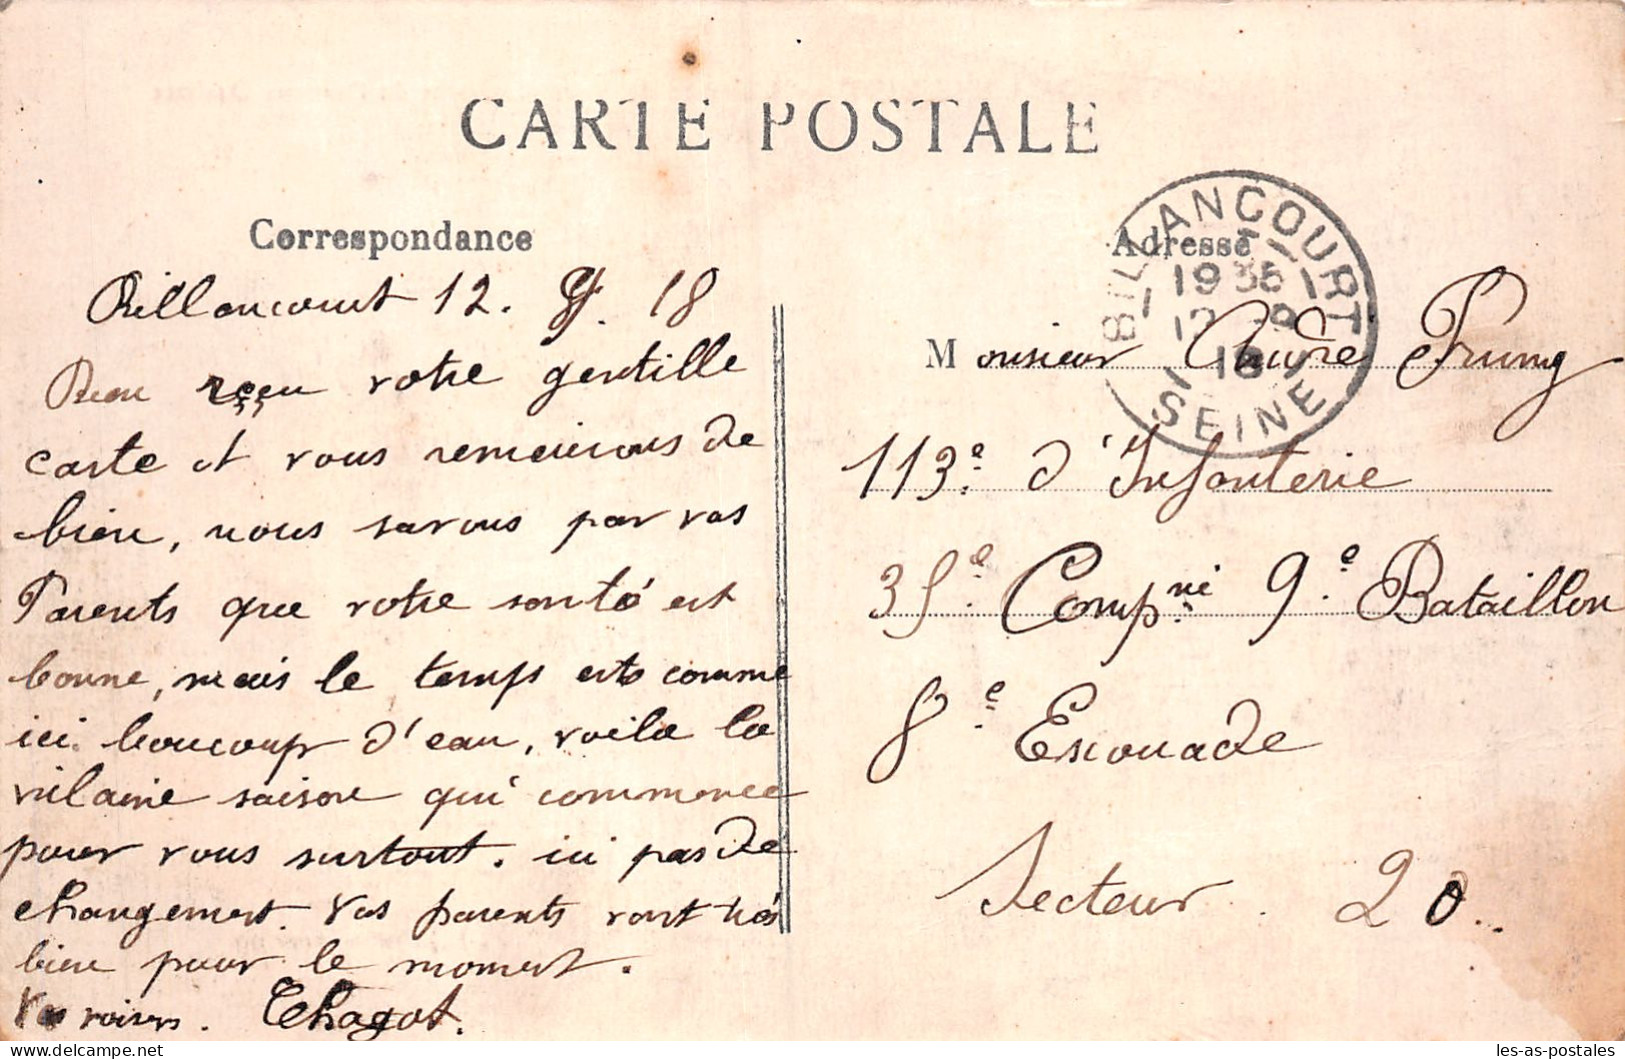 CARTE POSTALE
Correspondance
Billancourt 12. 9. 18
Bien reçu votre gentille
carte et vous remercions de
bien, nous savons par vos
Parents que votre santé est
bonne, mais le temps est comme
ici. boucoup d'eau, voila la
vilaine saison qui commence
pour vous surtout. ici pas de
changement. Vos parents vont très
bien pour le moment.
Vos voisins. Chagot.
Adresse
BILLANCOURT
1935
12 - 9
18
SEINE
Monsieur André Prung
113e d'Infanterie
35e Compnie 9e Bataillon
8e Escouade
Secteur. 20..
les-as-postales